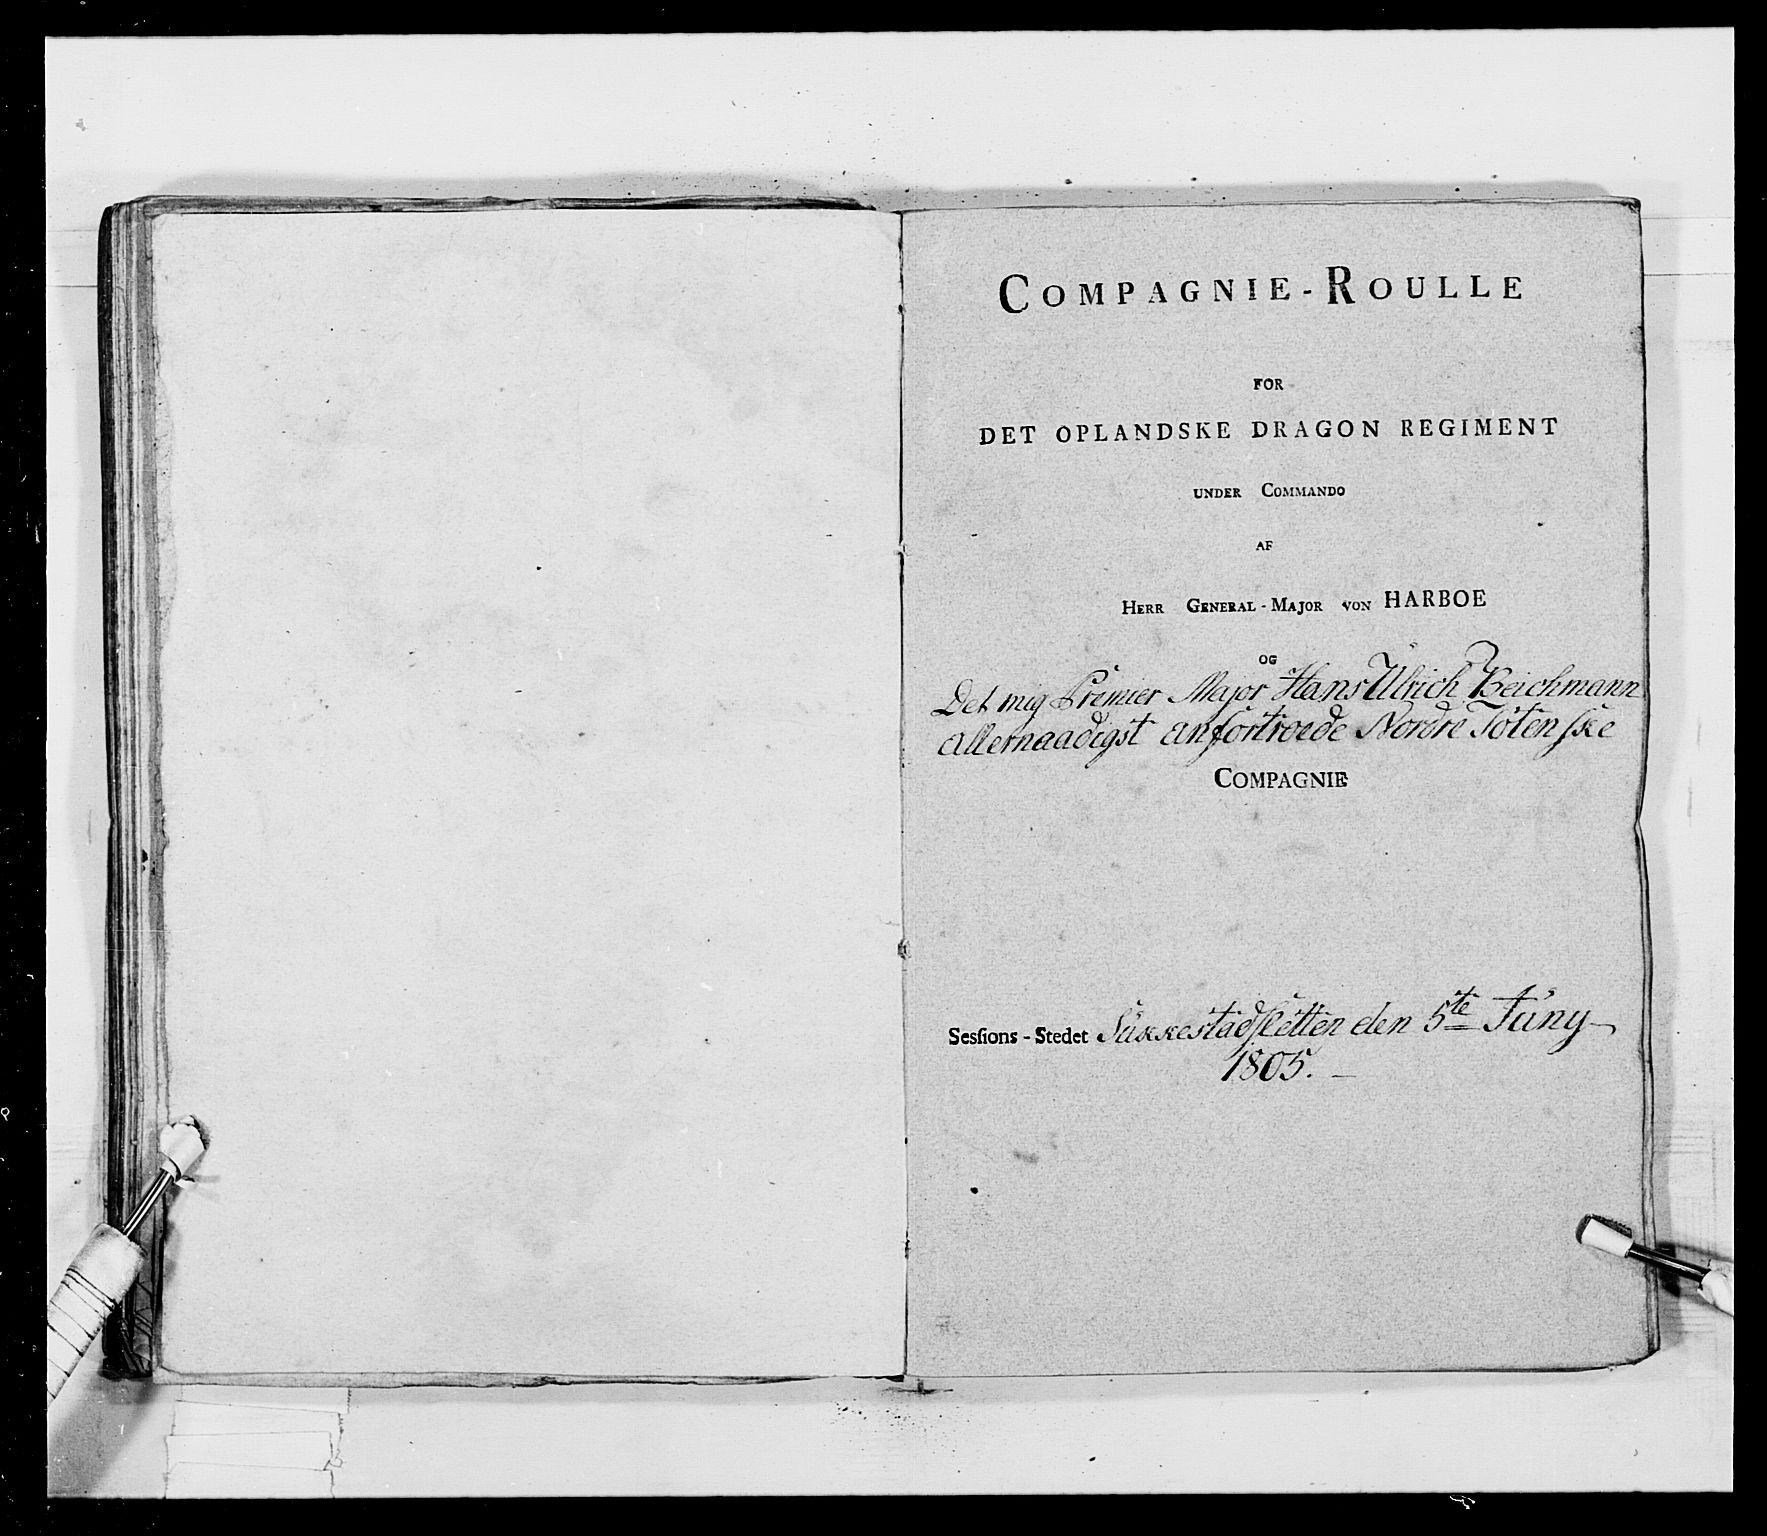 COMPAGNIE-ROULLE
FOR
DET OPLANDSKE DRAGON REGIMENT
UNDER COMMANDO
AF
HERR GENERAL-MAJOR VON HARBOE
OG
Det mig Premier Major Hans Ulrich Beichmann
allernaadigst anfortroede Nordre Totenske
COMPAGNIE
Sesſions-Stedet Sukkestadsletten den 5te Juny
1805.